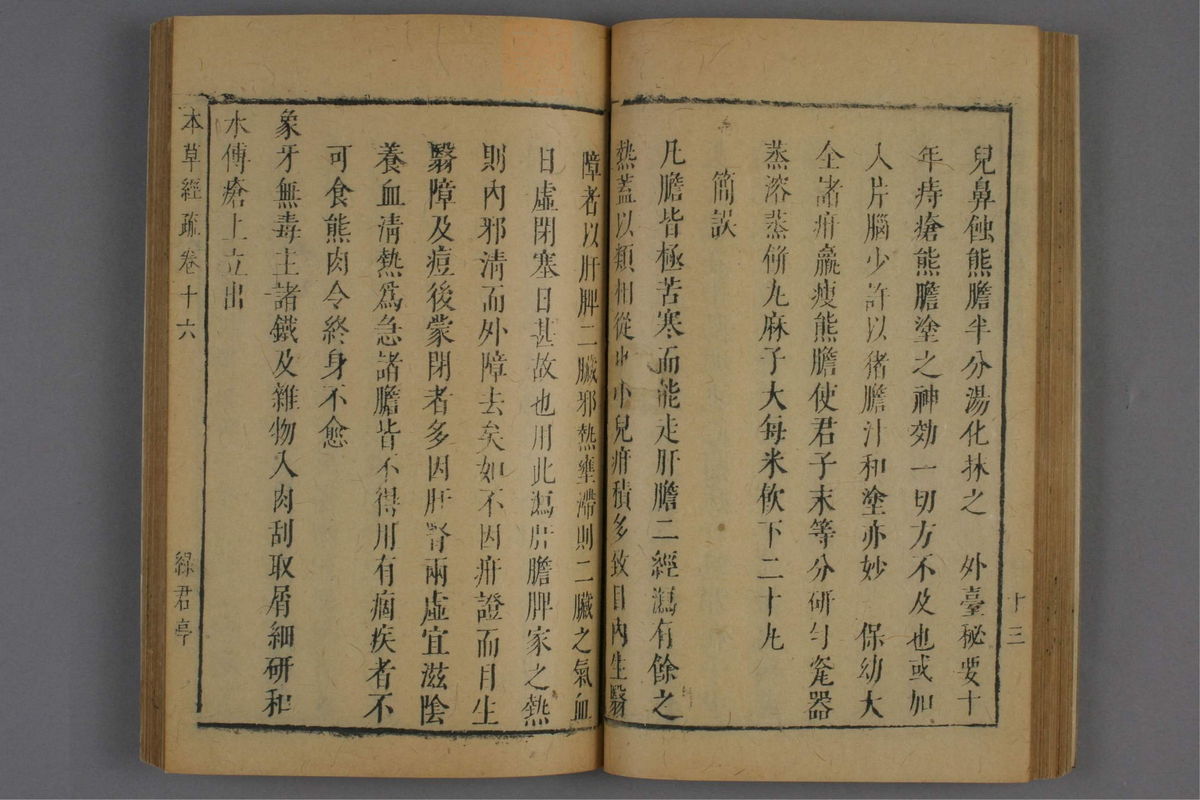 兒鼻蝕熊膽半分湯化抹之　外臺秘要十
年痔瘡熊膽塗之神効一切方不及也或加
入片腦少許以猪膽汁和塗亦妙　保幼大
全諸疳羸瘦熊膽使君子末等分研勻瓷器
蒸溶蒸餅丸麻子大每米飲下二十丸
簡誤
凡膽皆極苦寒而能走肝膽二經瀉有餘之
熱蓋以類相從也小兒疳積多致目內生翳
障者以肝脾二臟邪熱壅滯則二臟之氣血
日虛閉塞日甚故也用此瀉肝膽脾家之熱
則內邪清而外障去矣如不因疳證而目生
翳障及痘後蒙閉者多因肝腎兩虛宜滋陰
養血清熱爲急諸膽皆不得用有痼疾者不
可食熊肉令終身不愈
象牙無毒主諸鐵及雜物入肉刮取屑細研和
水傅瘡上立出
本草經疏卷十六
綠君亭
十三